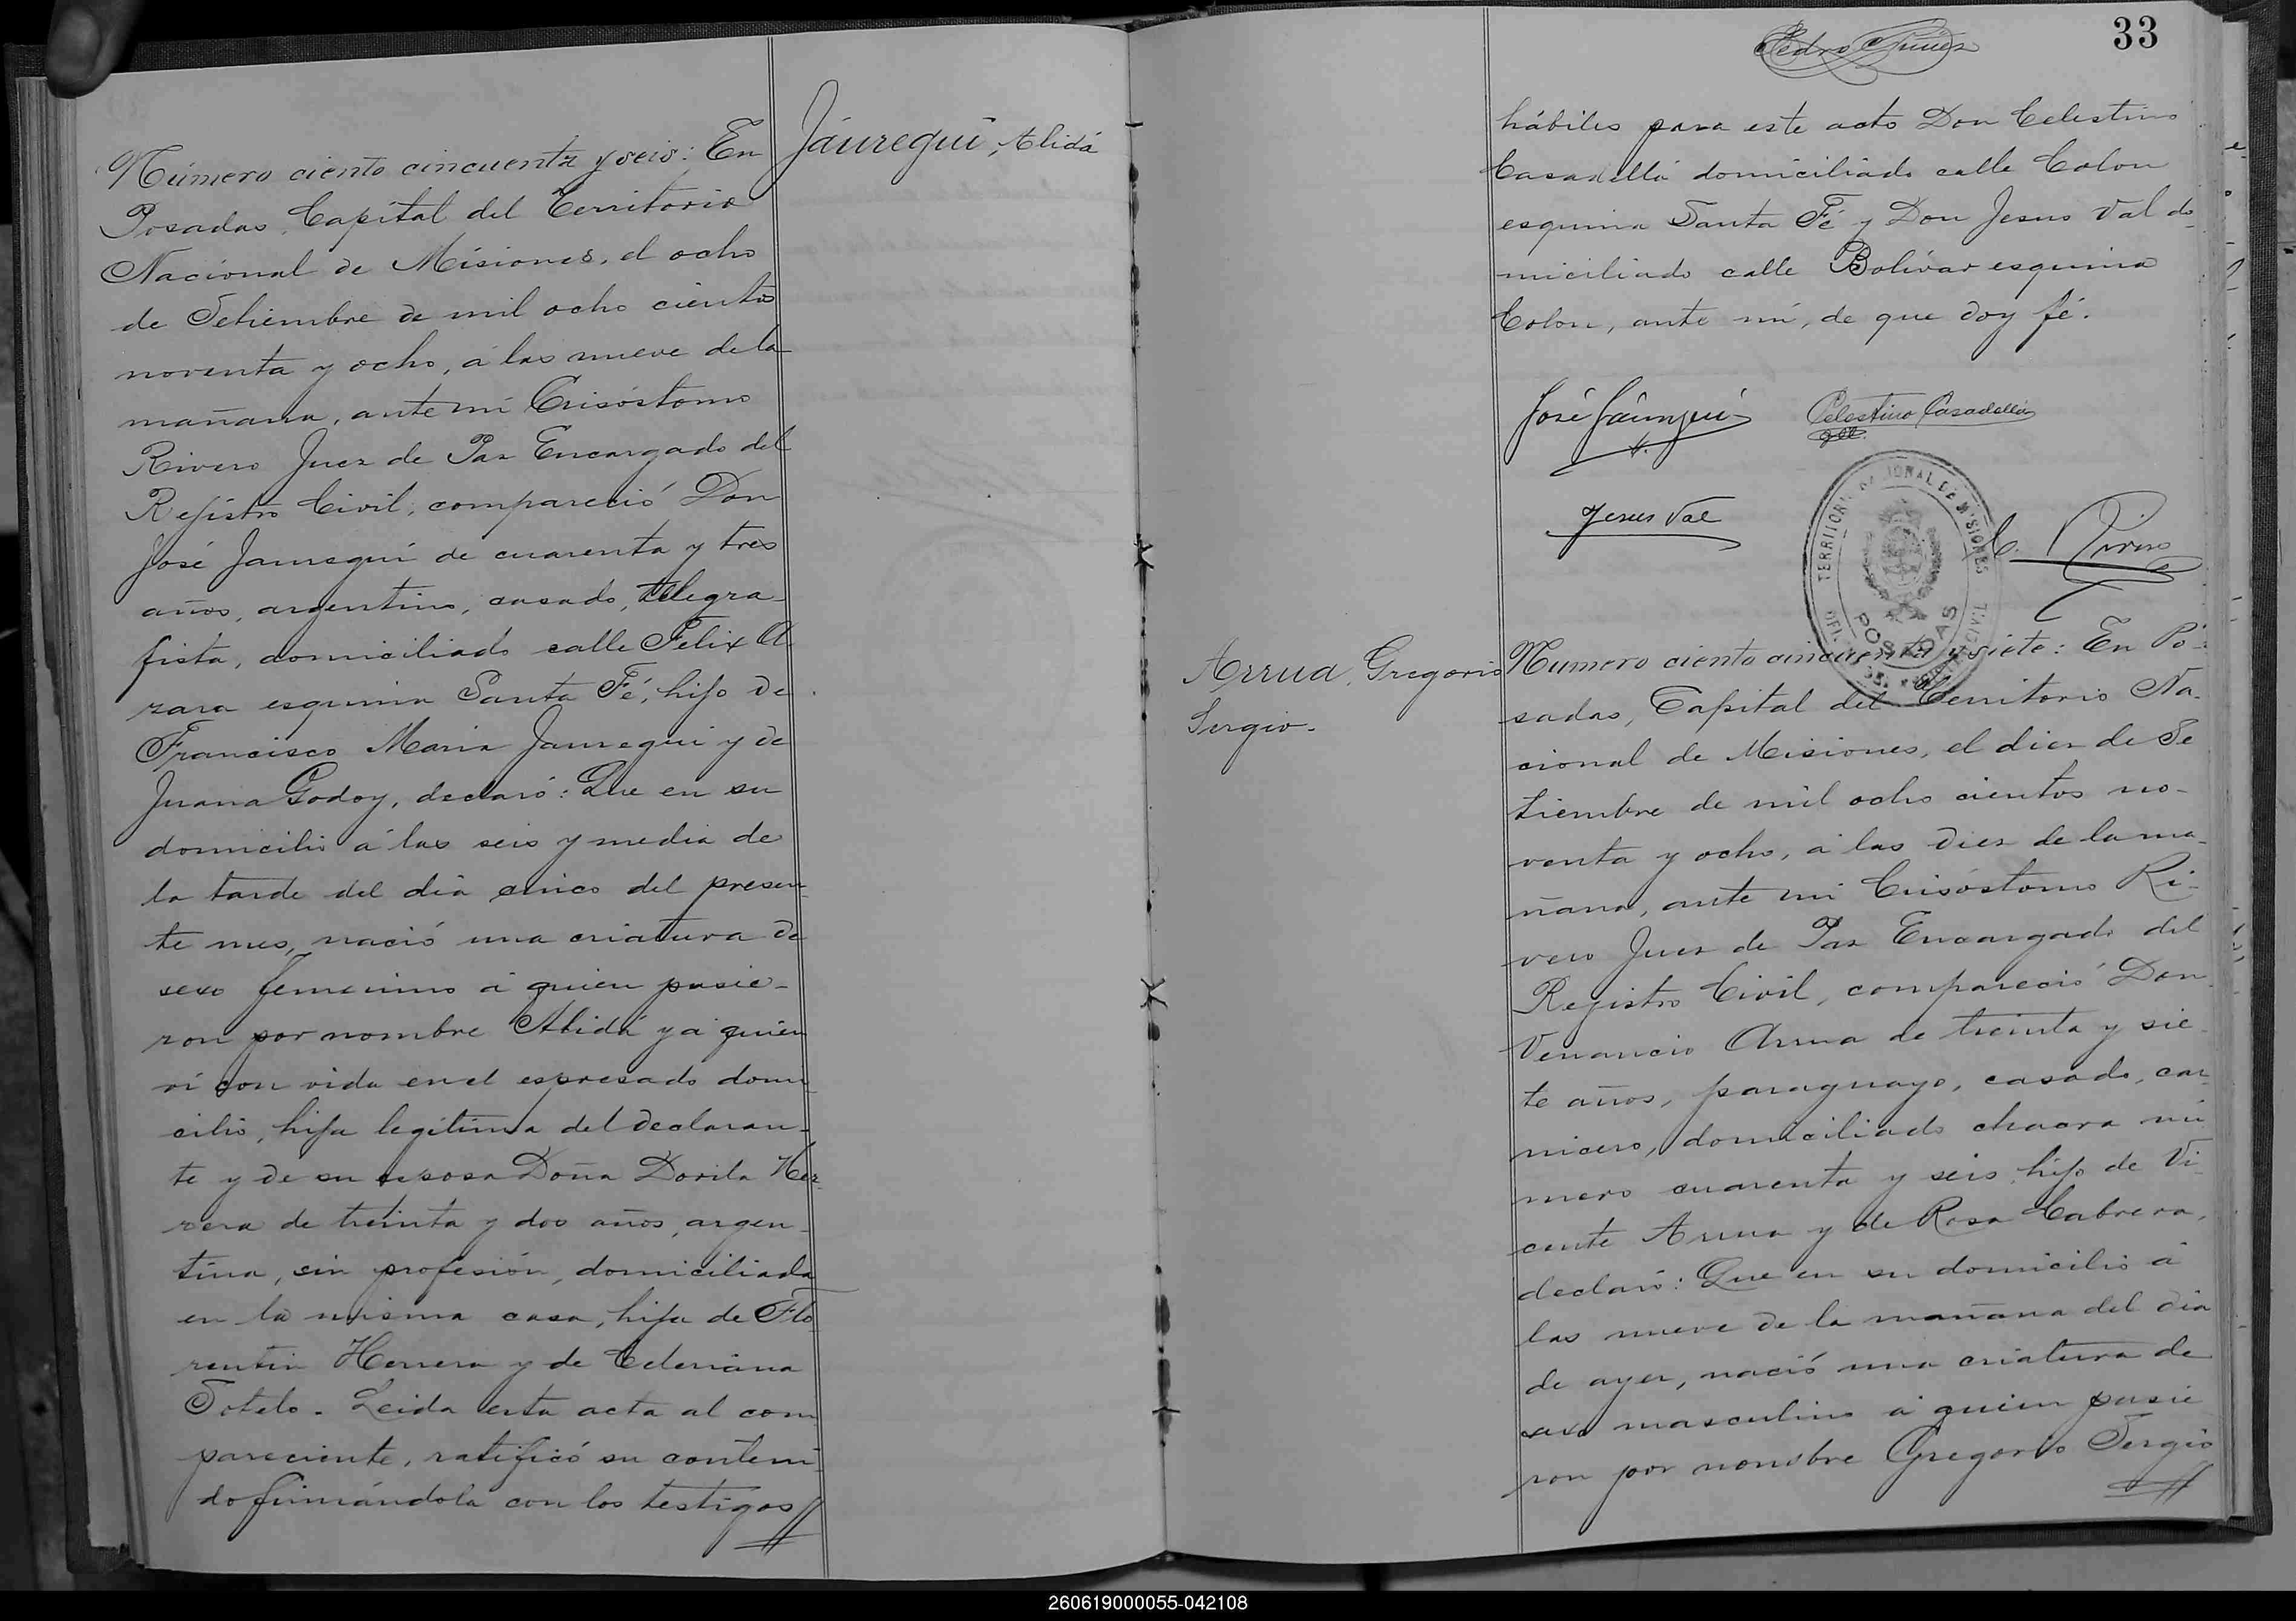 Número ciento cincuenta y seis: En
Jáuregui, Alida
Posadas, Capital del Territorio
Nacional de Misiones, el ocho
de Setiembre de mil ocho cientos
noventa y ocho, á las nueve de la
mañana, ante mí Crisóstomo
Rivero Juez de Paz Encargado del
Registro Civil, compareció Don
José Jauregui de cuarenta y tres
años, argentino, casado, telegra-
fista, domiciliado calle Felix A
zara esquina Santa Fé, hijo de
Francisco Maria Jauregui y de
Juana Godoy, declaró: Que en su
domicilio á las seis y media de
la tarde del dia cinco del presen-
te mes, nació una criatura de
sexo femenino á quien pusie-
ron por nombre Alida y á quien
ví con vida en el espresado domi-
cilio, hija legítima del declaran-
te y de su esposa Doña Dorila Her-
rera de treinta y dos años, argen-
tina, sin profesión, domiciliada
en la misma casa, hija de Flo-
rentin Herrera y de Celeriana
Sotelo. Leida esta acta al com-
pareciente, ratificó su conteni-
do firmándola con los testigos
33
Pedro Nuñez
hábiles para este acto Don Celestino
Casadellá domiciliado calle Colon
esquina Santa Fé y Don Jesus Val do-
miciliado calle Bolívar esquina
Colon, ante mí, de que doy fé.
José Jáuregui
Celestino Casadellá
Jesus Val
C. Rivero
TERRITORIO NACIONAL DE MISIONES
POSADAS
CIVIL
Arrua, Gregorio
Sergio.
Numero ciento cincuenta y siete: En Po-
sadas, Capital del Territorio Na-
cional de Misiones, el diez de Se
tiembre de mil ocho cientos no-
venta y ocho, á las diez de la ma-
ñana, ante mí Crisóstomo Ri-
vero Juez de Paz Encargado del
Registro Civil, compareció Don
Venancio Arrua de treinta y sie-
te años, paraguayo, casado, car-
nicero, domiciliado chacra nú
mero cuarenta y seis, hijo de Vi-
cente Arrua y de Rosa Cabrera,
declaró: Que en su domicilio á
las nueve de la mañana del dia
de ayer, nació una criatura de
sexo masculino á quien pusie
ron por nombre Gregorio Sergio
260619000055-042108